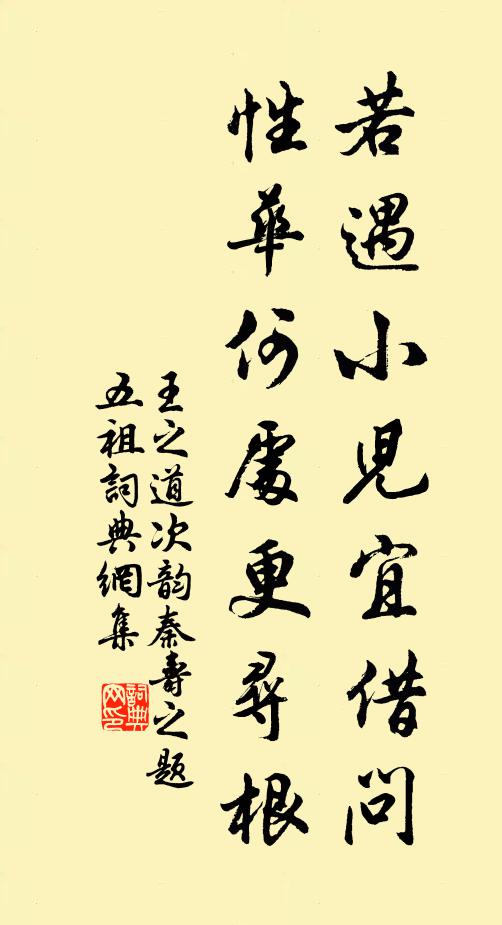 若遇小兒宜借問
性華何處更尋根
王之道次韵秦壽之题
五祖詞典網集
詞典网印